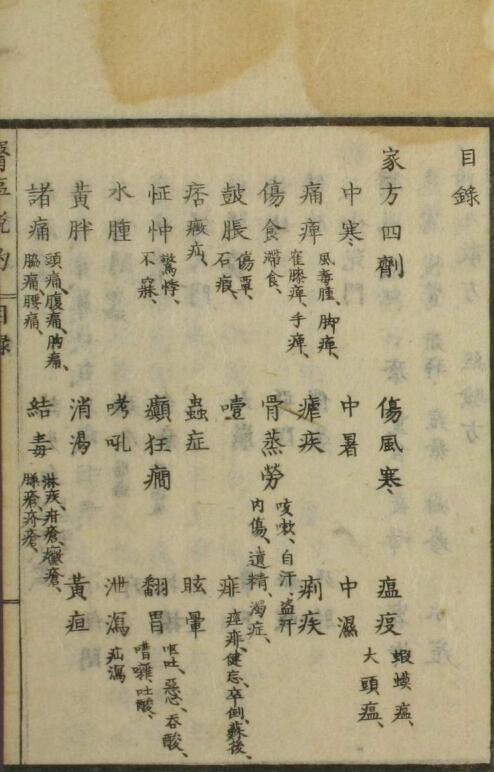 目錄
家方四劑
傷風寒
瘟疫 蝦蟆瘟、大頭瘟、
中寒
中暑
中濕
痛痺 風毒腫、脚痺、雀膝痺、手痺、
瘧疾
痢疾
傷食 滯食、
骨蒸勞 咳嗽、自汗、盗汗 内傷、遺精、渇症、
鼓脹 傷蕈、石瘕、
噎
痱 瘖痱、健忘、卒倒、蘇後、
痞癥 疝、
蟲症
眩暈
怔忡 驚悸、不寐、
癲狂癇
翻胃 嘔吐、惡心、吞酸、嘈雜、吐酸、
水腫
哮吼
泄瀉 疝瀉
黃胖
消渴
黃疸
諸痛 頭痛、腹痛、胸痛、脇痛、腰痛、
結毒 淋疾、疳瘡、癥瘡、臁瘡、疥瘡、
目錄